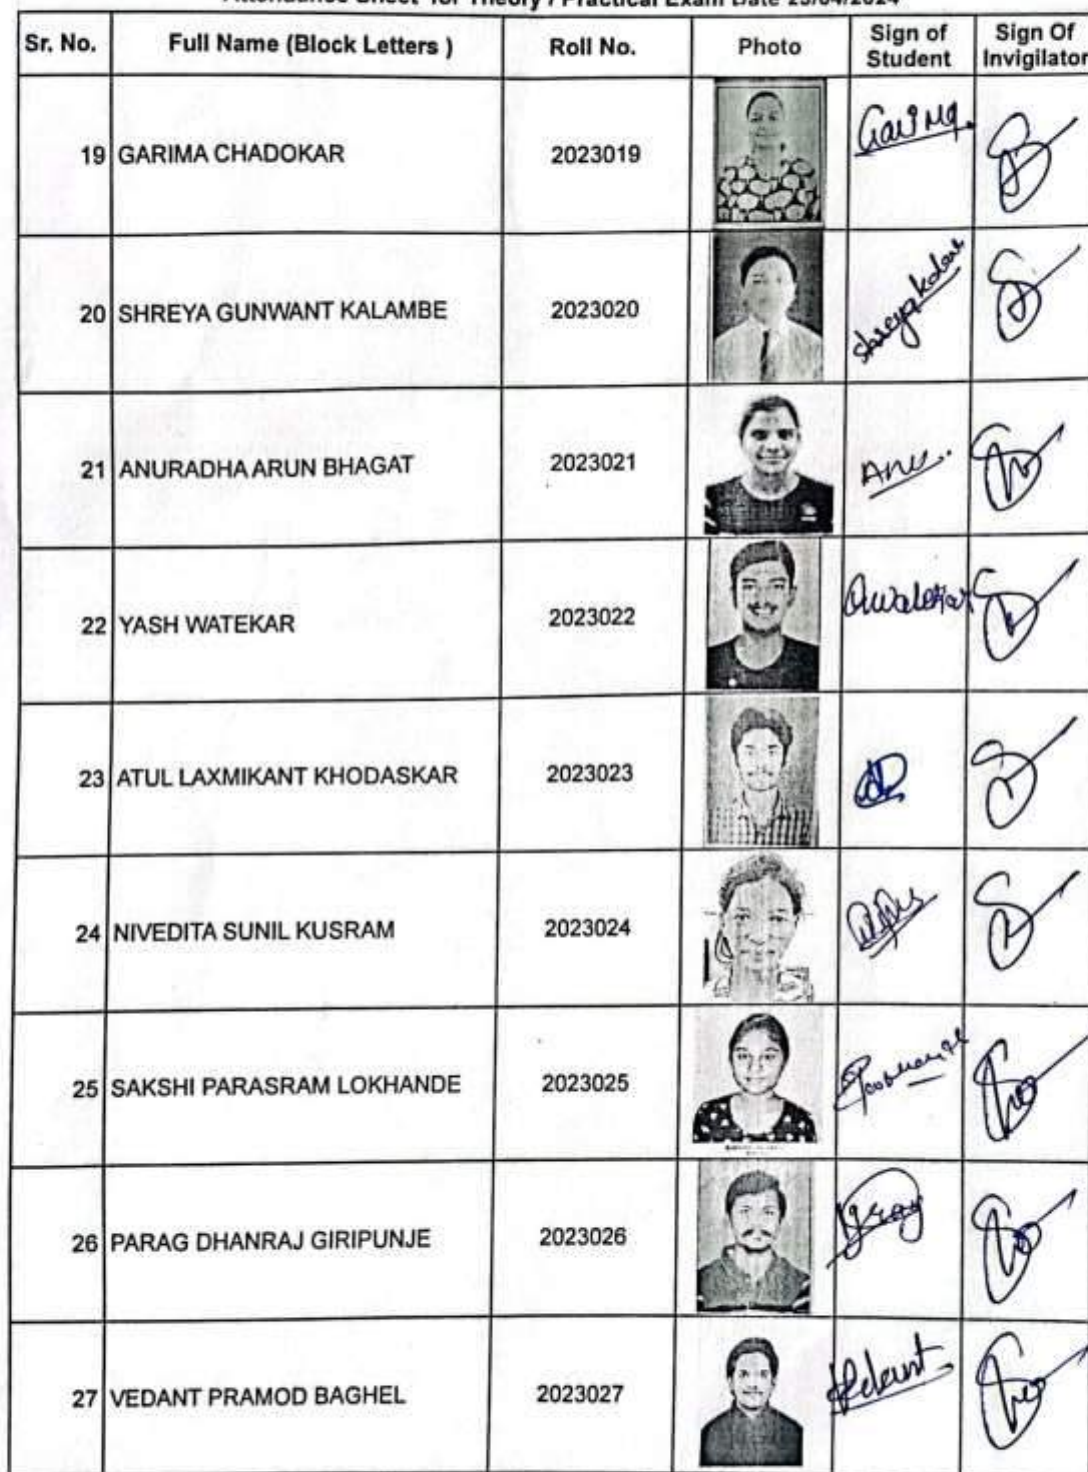 Attendance Sheet for Theory / Practical Exam Date 25/04/2024
Sr. No. Full Name (Block Letters ) Roll No. Photo Sign of Student Sign Of Invigilator
19 GARIMA CHADOKAR 2023019 Garima.
20 SHREYA GUNWANT KALAMBE 2023020
21 ANURADHA ARUN BHAGAT 2023021 Anu.
22 YASH WATEKAR 2023022
23 ATUL LAXMIKANT KHODASKAR 2023023
24 NIVEDITA SUNIL KUSRAM 2023024
25 SAKSHI PARASRAM LOKHANDE 2023025
26 PARAG DHANRAJ GIRIPUNJE 2023026
27 VEDANT PRAMOD BAGHEL 2023027